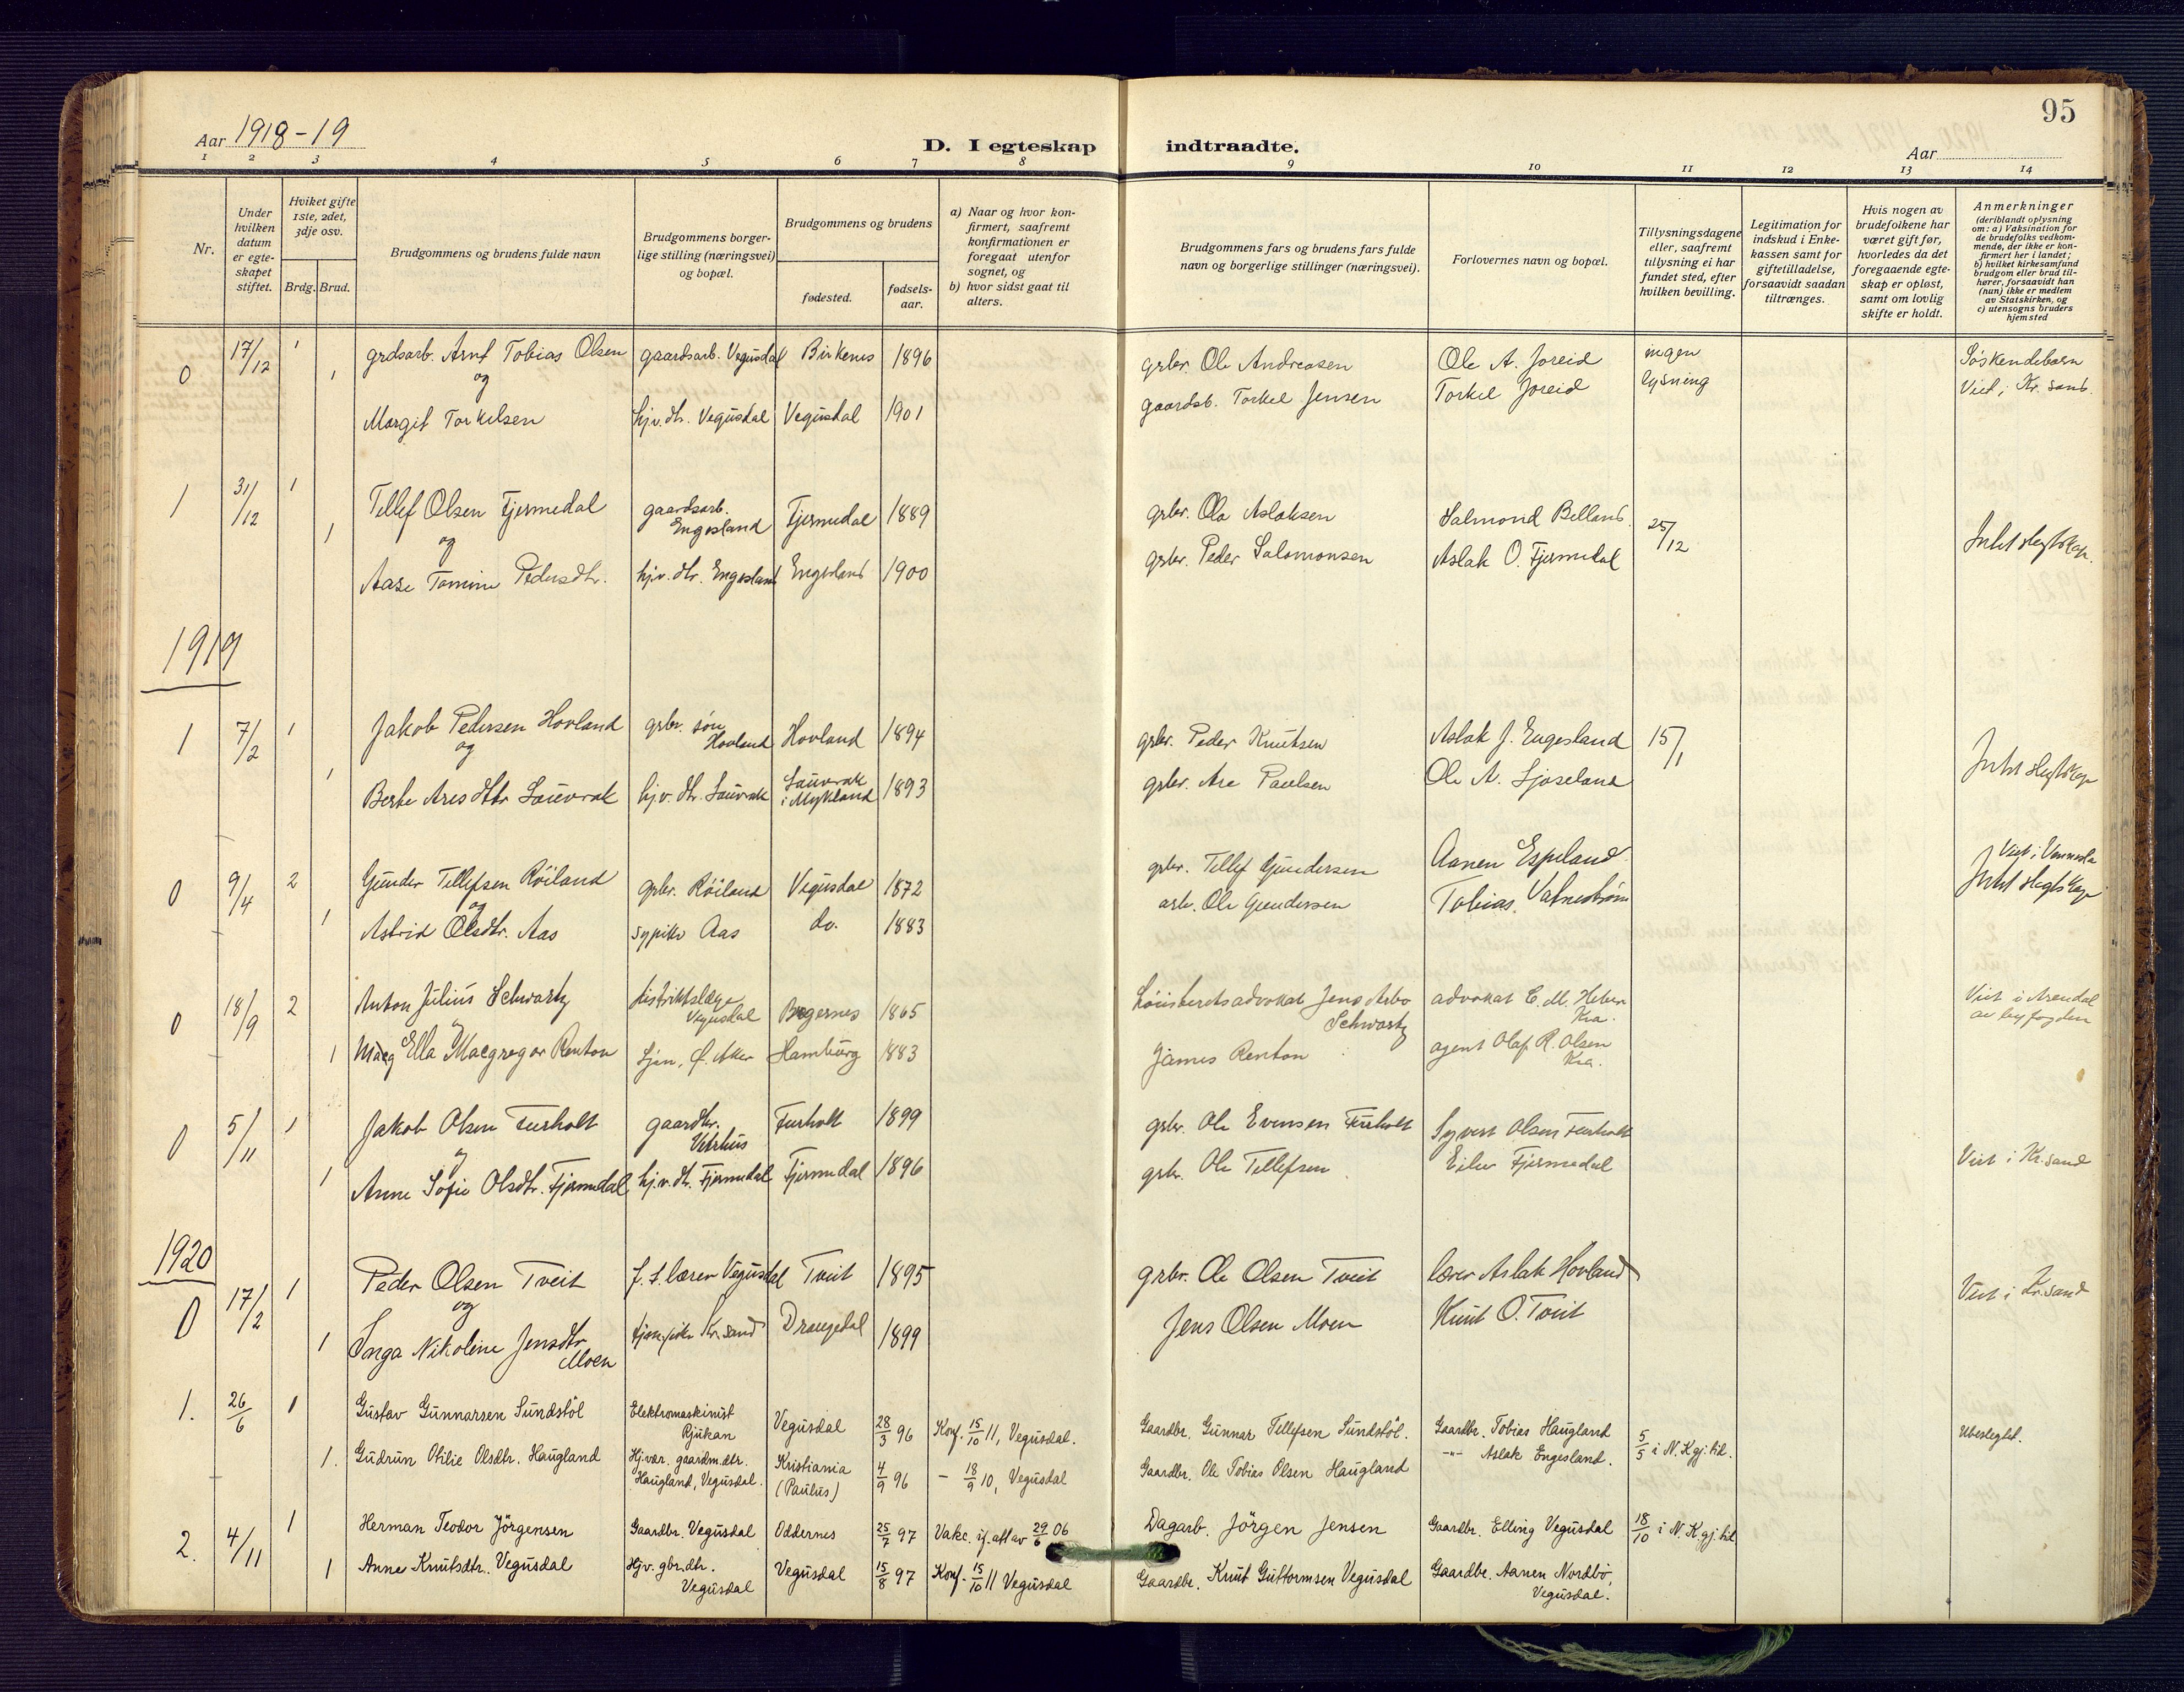 95
Aar 1918-19
D. I egteskap indtraadte.
Aar
1 2 3 4 5 6 7 8 9 10 11 12 13 14
Nr.
Under hvilken datum er egteskapet stiftet.
Hviket gifte 1ste, 2det, 3dje osv.
Brdg. Brud.
Brudgommens og brudens fulde navn
Brudgommens borgerlige stilling (næringsvei) og bopæl.
Brudgommens og brudens
fødested.
fødselsaar.
a) Naar og hvor konfirmert, saafremt konfirmationen er foregaat utenfor sognet, og
b) hvor sidst gaat til alters.
Brudgommens fars og brudens fars fulde navn og borgerlige stillinger (næringsvei).
Forlovernes navn og bopæl.
Tillysningsdagene eller, saafremt tillysning ei har fundet sted, efter hvilken bevilling.
Legitimation for indskud i Enkekassen samt for giftetilladelse, forsaavidt saadan tiltrænges.
Hvis nogen av brudefolkene har været gift før, hvorledes da det foregaaende egteskap er opløst, samt om lovlig skifte er holdt.
Anmerkninger
(deriblandt oplysning om: a) Vaksination for de brudefolks vedkommende, der ikke er konfirmert her i landet; b) hvilket kirkesamfund brudgom eller brud tilhører, forsaavidt han (hun) ikke er medlem av Statskirken, og c) utensogns bruders hjemsted
0 17/12 1 grdsarb. Arnt Tobias Olsen gaardsarb. Vegusdal Birkenes 1896 grbr. Ole Andreasen Ole A. Joreid ingen lysning Søskendebarn
og
1 Margit Torkelsen hjv. dtr. Vegusdal Vegusdal 1901 gaardsb. Torkel Jensen Torkel Joreid Viet i Kr.sand.
1 31/12 1 Tellef Olsen Fjermedal gaardsarb. Engesland Fjermedal 1889 grbr. Ola Aslaksen Salmond Belland 25/12 Intet slegtskap.
og
1 Aase Tomine Pedersdtr. hjv. dtr. Engesland Engesland 1900 grbr. Peder Salomonsen Aslak O. Fjermedal
1919
1 7/2 1 Jakob Pedersen Hovland grbr. søn Hovland Hovland 1894 grbr. Peder Knutsen Aslak J. Engesland 15/1 Intet slegtskap
og
1 Berte Aresdttr Sauvrak hjv. dtr. Sauvrak Sauvrak i Mykland 1893 grbr. Are Paulsen Ole A. Ljoseland
0 9/4 2 Gunder Tellefsen Røiland grbr. Røiland Vegusdal 1872 grbr. Tellef Gundersen Aanen Espeland Viet i Vennesla
og
1 Astrid Olsdtr. Aas sypike Aas do. 1883 arb. Ole Gundersen Tobias Vatnestrøm Intet slegtskap
0 18/9 2 Anton Julius Schwartz distriktslæge Vegusdal 1865 Høiesteretsadvokat Jens Arbo Schwartz advokat C. M. Kra. Viet i Arendal av byfogden
1 Ella Macgregor Renton Hamburg 1883 James Renton agent Olaf R. Olsen Kra.
0 5/11 1 Jakob Olsen Furholt gaardbr. Vetrhus Furholt 1899 grbr. Ole Evensen Furholt Syvert Olsen Furholt Viet i Kr.sand
og
1 Anne Sofie Olsdtr. Fjermedal hj.v. dtr. Fjermedal Fjermedal 1896 grbr. Ole Tellefsen Eilev Fjermedal
1920
0 17/2 1 Peder Olsen Tveit f. t. lærer Vegusdal Tveit 1895 grbr. Ole Olsen Tveit lærer Aslak Hovland Viet i Kr.sand
og
1 Inga Nikoline Jensdtr Moen tjenepike Kr.sand Drangedal 1899 Jens Olsen Moen Knut O. Tveit
1. 26/6 1 Gustav Gunnarsen Sundstöl Elektromaskinist Rjukan Vegusdal 28/3 96 Konf. 15/10 11, Vegusdal. Gaardbr. Gunnar Tellefsen Sundstöl. Gaardbr. Tobias Haugland 5/5 i N.K gj. tid. Ubeslegtet.
1. Gudrun Otilie Olsdtr. Haugland Hj.vær. gaardm.dtr. Haugland, Vegusdal. Kristiania (Paulus) 4/9 96 - 18/9 10, Vegusdal Gaardbr. Ole Tobias Olsen Haugland -"- Aslak Engesland.
2. 4/11 1 Herman Teodor Jörgensen Gaardbr. Vegusdal Oddernes 25/7 97 Vakc. if. att av 29/6 06 Dagarb. Jörgen Jensen Gaardbr. Elling Vegusdal 18/10 i N.K.gj. tid
1 Anne Knutsdtr. Vegusdal Hjv. gbr.dtr. Vegusdal Vegusdal 15/8 97 Konf. 15/10 11 Vegusdal Gaardbr. Knut Guttormsen Vegusdal Gaardbr. Aanen Nordbø, Vegusdal.